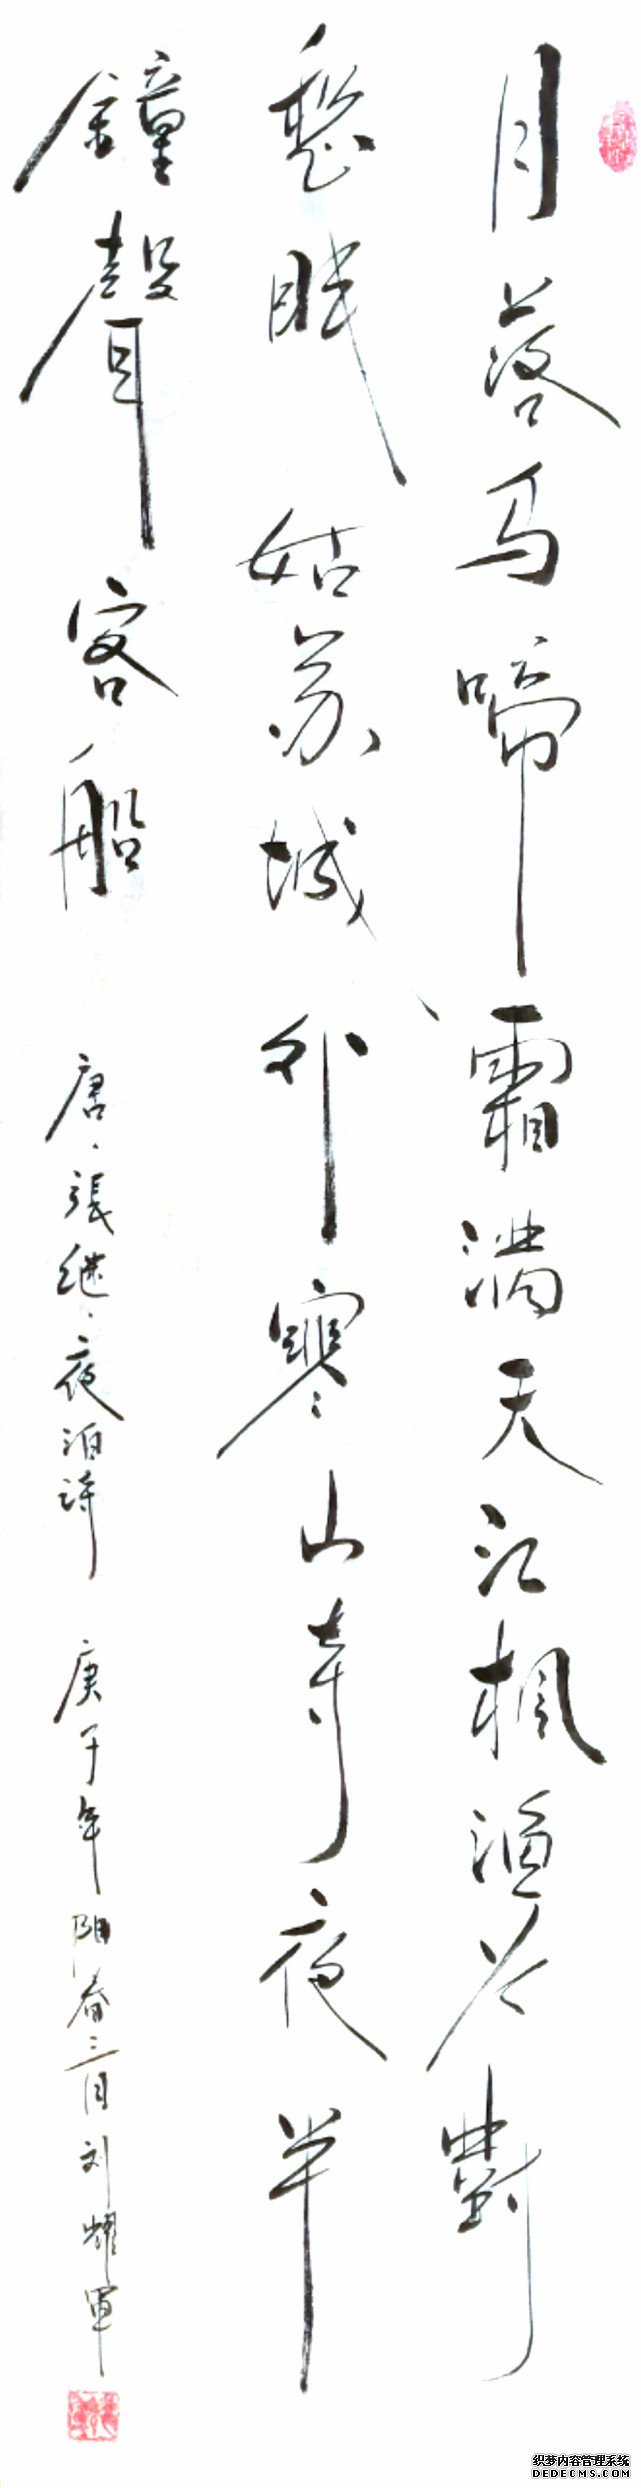 月落乌啼霜满天江枫渔火對
愁眠姑苏城外寒山寺夜半
鐘聲客船
唐、張继、夜泊诗 庚子年阳春三月刘耀軍
织梦内容管理系统
DEDECMS.COM